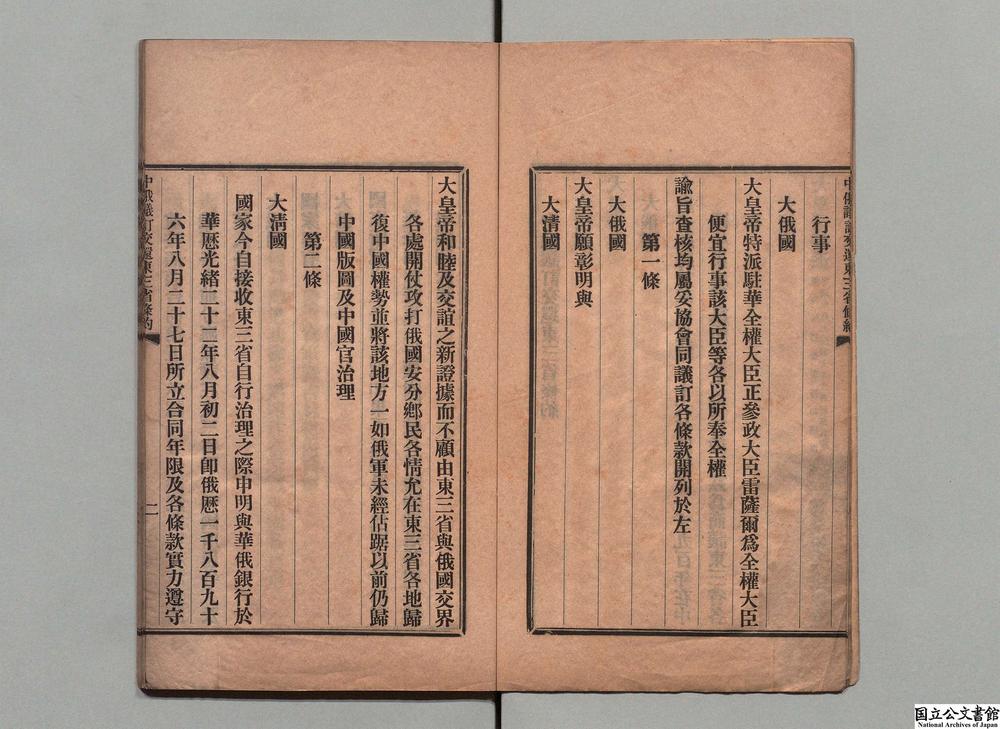 行事
大俄國
大皇帝特派駐華全權大臣正參政大臣雷薩爾爲全權大臣
便宜行事該大臣等各以所奉全權
諭旨查核均屬妥協會同議訂各條款開列於左
第一條
大俄國
大皇帝願彰明與
大清國
大皇帝和睦及交誼之新證據而不顧由東三省與俄國交界
各處開仗攻打俄國安分鄉民各情允在東三省各地歸
復中國權勢並將該地方一如俄軍未經佔踞以前仍歸
中國版圖及中國官治理
第二條
大淸國
國家今自接收東三省自行治理之際申明與華俄銀行於
華歷光緒二十二年八月初二日卽俄歷一千八百九十
六年八月二十七日所立合同年限及各條款實力遵守
中俄議訂交還東三省條約
二
国立公文書館
National Archives of Japan